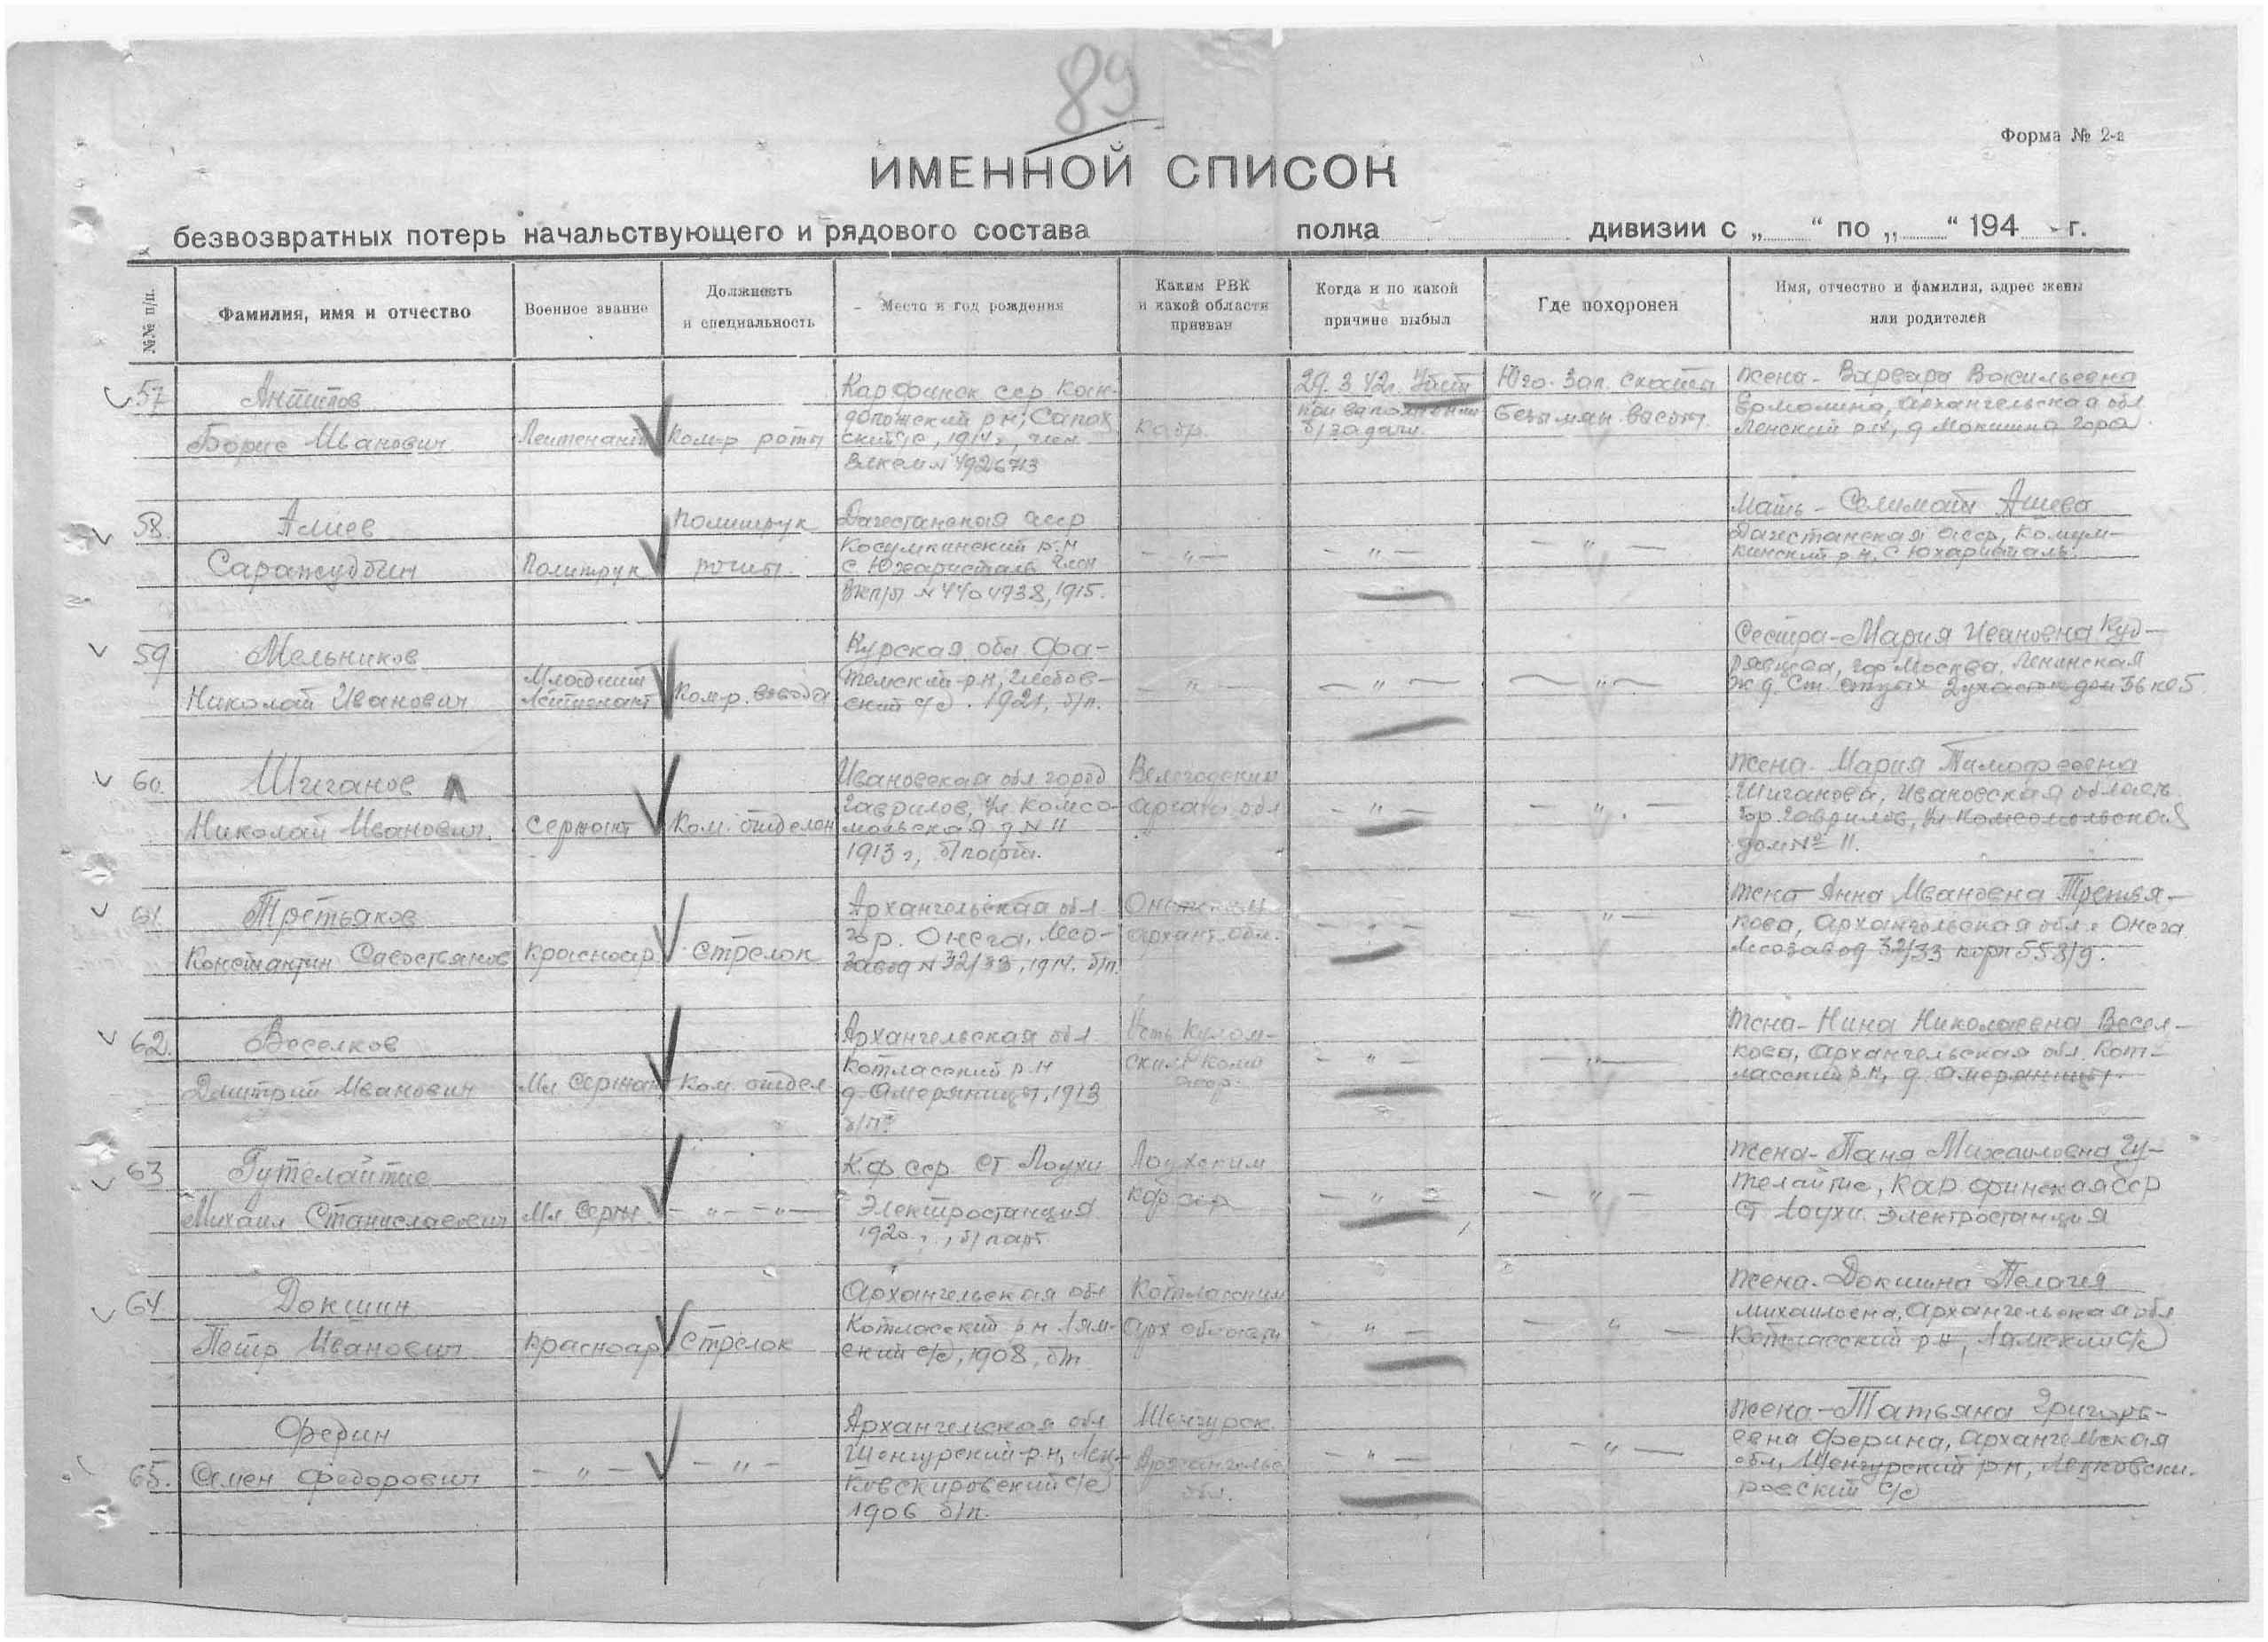 89
Форма № 2-а
ИМЕННОЙ СПИСОК
безвозвратных потерь начальствующего и рядового состава полка дивизии с „ “ по „ “ 194 г.
№№ п/п.
Фамилия, имя и отчество
Военное звание
Должность
и специальность
Место и год рождения
Каким РВК
и какой области
призван
Когда и по какой
причине выбыл
Где похоронен
Имя, отчество и фамилия, адрес жены
или родителей
57
Антипов
Борис Иванович
Лейтенант
Ком-р роты
Карфинск сср Кон-
допожский р-н, Сапож
ский с/с, 1914 г, член
Влксм № 4926713
Кадр.
29.3.42г. Убит
при выполнении
б/задачи.
Юго-Зап. скаты
безымян. высоты.
жена - Варвара Васильевна
Ермолина, Архангельская обл
Ленский р-н, д Мокшина гора
58.
Алиев
Саражудтин
Политрук
Политрук
роты.
Дагестанская асср
Косумкинский р-н
с Юхаристаль член
Вкп/б № 4404738, 1915.
— " —
— " —
— " —
Мать -
Алиева
Дагестанская асср, Косум-
кинский р.н, с Юхаристаль.
59
Мельников
Николай Иванович
Младший
Лейтенант
Ком-р. взвода
Курская обл Фа-
тежский р-н, Глебов-
ский с/с. 1921, б/п.
— " —
— " —
— " —
Сестра - Мария Ивановна Куд-
рявцева, гор Москва. Ленинская
ж д. Ст. отдых 2 участок дом 36 кв 5
60.
Шиганов
Николай Иванович.
Сержант
Ком. отделен
Ивановская обл город
Гаврилов, ул. Комсо-
мольская д № 11
1913 г, б/парт.
Вологодским
арханг. обл
— " —
— " —
жена - Мария Тимофеевна
Шиганова, Ивановская область
Гор. Гаврилов, ул Комсомольская
дом № 11.
61.
Третьяков
Константин Савостьянов
Красноар
Стрелок
Архангельская обл
гор. Онега, Лесо-
завод № 32/33, 1914. б/п.
Онежским
арханг. обл.
— " —
— " —
жена Анна Ивановна Третья-
кова, Архангельская обл. г Онега
Лесозавод 32/33 корп 558/9.
62.
Веселков
Дмитрий Иванович
Мл Сержан
Ком. отдел.
Архангельская обл
Котласский р.н
д. Амеряницы, 1913
б/п.
Усть Кулом-
ским Коми
асср.
— " —
— " —
жена - Нина Николаевна Весел-
кова, Архангельская обл. Кот-
ласский р.н, д. Амеряницы.
63
Гутелайтис
Михаил Станиславович
Мл Серж.
— " — " —
К.ф. сср. ст Лоухи
Электростанция
1920 г., б/парт
Лоухским
кф сср
— " —
— " —
жена - Таня Михайловна Гу-
телайтис, Кар финская сср
ст. Лоухи. Электростанция
64
Докшин
Петр Иванович
Красноар
Стрелок
Архангельская обл
Котласский р-н Лям-
ский с/с, 1908, б/п
Котласским
Арх области
— " —
— " —
жена - Докшина Пелагия
Михайловна, Архангельская обл
Котласский р-н,
65.
Федин
Семен Федорович
— " —
— " —
Архангельская обл
Шенкурский р-н,
1906 б/п.
Шенкурск.
Архангельс
обл.
— " —
— " —
жена - Татьяна Григорь-
евна Федина, Архангельская
обл, Шенкурский р-н,
с/с